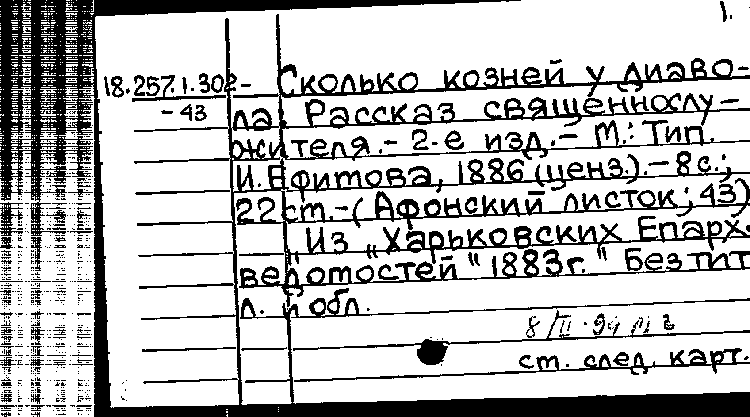 1.
18.257.1.302- Сколько козней у диаво-
-43 ла: Рассказ священнослу-
жителя.- 2-е изд.- М.: Тип.
И. Ефимова, 1886 (ценз.).- 8 с.;
22 см.-(Афонский листок; 43)
„Из „Харьковских Епарх.
ведомостей" 1883г." Без тит.
л. и обл.
8/III-94
ст. след. карт.